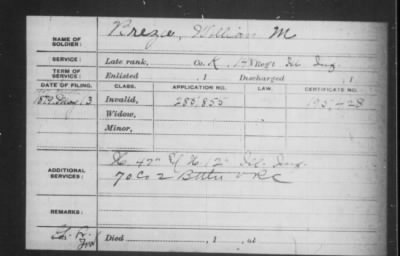 NAME OF SOLDIER: Breze, William M
SERVICE: Late rank, Co. K, 148 Reg't Ill Inf.
TERM OF SERVICE: Enlisted , 1 Discharged , 1
DATE OF FILING. CLASS. APPLICATION NO. LAW. CERTIFICATE NO.
1879 May 13 Invalid, 285,855
Widow,
Minor,
ADDITIONAL SERVICES: H. 47" & K 12" Ill. Inf.
70 Co 2 Batt'n V R C
REMARKS:
Died , 1 , at